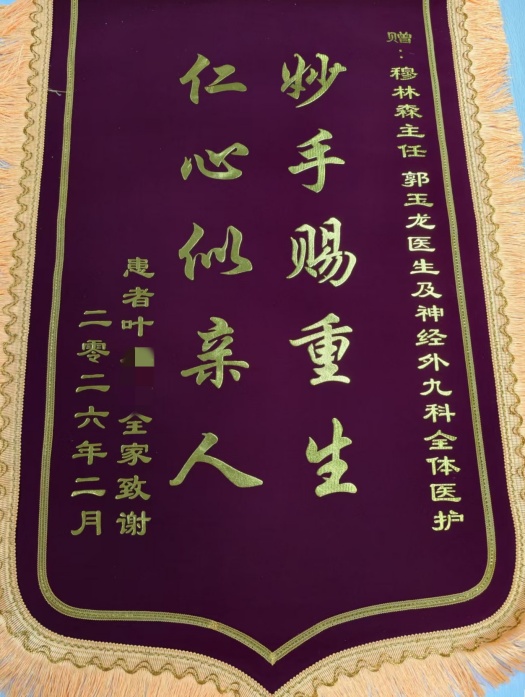 赠：穆林森主任 郭玉龙医生及神经外九科全体医护
妙手赐重生
仁心似亲人
患者叶 全家致谢
二零二六年二月